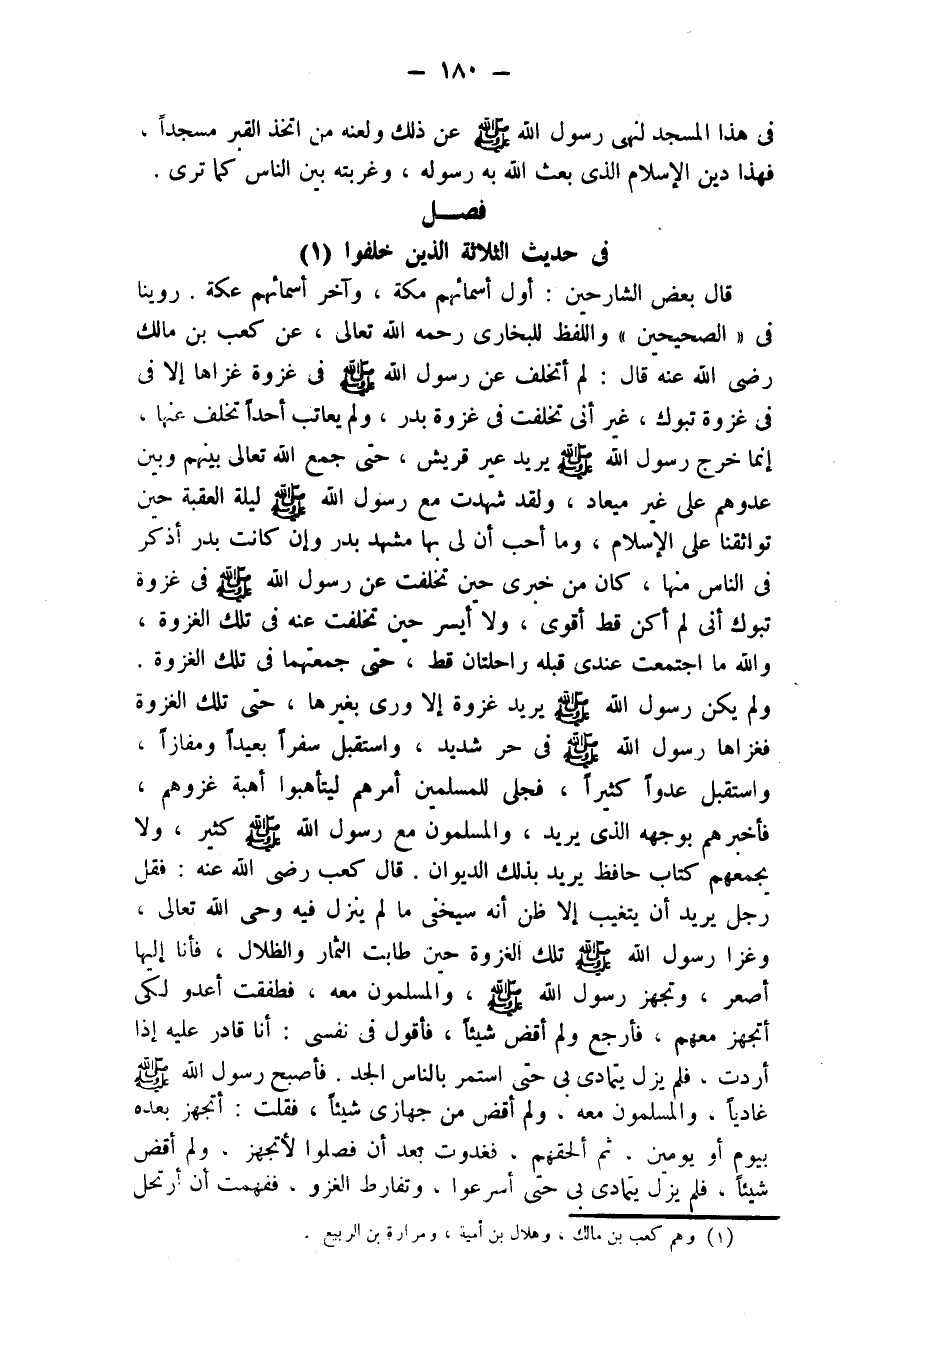 — ١٨٠ —
فى هذا المسجد لنهى رسول الله ﷺ عن ذلك ولعنه من اتخذ القبر مسجداً .
فهذا دين الإسلام الذى بعث الله به رسوله ، وغربته بين الناس كما ترى .
فصــل
فى حديث الثلاثة الذين خلفوا (١)
قال بعض الشارحين : أول أسمائهم مكة ، وآخر أسمائهم عكة . روينا
فى « الصحيحين » واللفظ للبخارى رحمه الله تعالى ، عن كعب بن مالك
رضى الله عنه قال : لم أتخلف عن رسول الله ﷺ فى غزوة غزاها إلا فى
فى غزوة تبوك ، غير أنى تخلفت فى غزوة بدر ، ولم يعاتب أحداً تخلف عنها ،
إنما خرج رسول الله ﷺ يريد عير قريش ، حتى جمع الله تعالى بينهم وبين
عدوهم على غير ميعاد ، ولقد شهدت مع رسول الله ﷺ ليلة العقبة حين
تواثقنا على الإسلام ، وما أحب أن لى بها مشهد بدر وإن كانت بدر أذكر
فى الناس منها ، كان من خبرى حين تخلفت عن رسول الله ﷺ فى غزوة
تبوك أنى لم أكن قط أقوى ، ولا أيسر حين تخلفت عنه فى تلك الغزوة ،
والله ما اجتمعت عندى قبله راحلتان قط ، حتى جمعتهما فى تلك الغزوة .
ولم يكن رسول الله ﷺ يريد غزوة إلا ورى بغيرها ، حتى تلك الغزوة
فغزاها رسول الله ﷺ فى حر شديد ، واستقبل سفراً بعيداً ومفازاً ،
واستقبل عدواً كثيراً ، فجلى للمسلمين أمرهم ليتأهبوا أهبة غزوهم ،
فأخبرهم بوجهه الذى يريد ، والمسلمون مع رسول الله ﷺ كثير ، ولا
يجمعهم كتاب حافظ يريد بذلك الديوان . قال كعب رضى الله عنه : فقل
رجل يريد أن يتغيب إلا ظن أنه سيخفى ما لم ينزل فيه وحى الله تعالى ،
وغزا رسول الله ﷺ تلك الغزوة حين طابت الثمار والظلال ، فأنا إليها
أصعر ، وتجهز رسول الله ﷺ ، والمسلمون معه ، فطفقت أعدو لكى
أتجهز معهم ، فأرجع ولم أقض شيئاً ، فأقول فى نفسى : أنا قادر عليه إذا
أردت . فلم يزل يتمادى بى حتى استمر بالناس الجد . فأصبح رسول الله ﷺ
غادياً . والمسلمون معه . ولم أقض من جهازى شيئاً ، فقلت : أتجهز بعده
بيوم أو يومين . ثم ألحقهم . فغدوت بعد أن فصلوا لأتجهز . ولم أقض
شيئاً . فلم يزل يتمادى بى حتى أسرعوا . وتفارط الغزو . ففهمت أن أرتحل
(١) وهم كعب بن مالك ، وهلال بن أمية ، ومرارة بن الربيع .